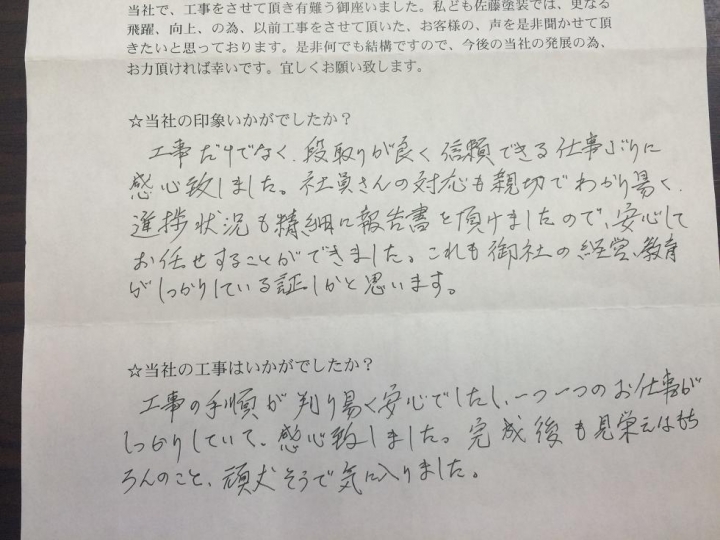 当社で、工事をさせて頂き有難う御座いました。私ども佐藤塗装では、更なる
飛躍、向上、の為、以前工事をさせて頂いた、お客様の、声を是非聞かせて頂
きたいと思っております。是非何でも結構ですので、今後の当社の発展の為、
お力頂ければ幸いです。宜しくお願い致します。
☆当社の印象いかがでしたか？
工事だけでなく、段取りが良く信頼できる仕事ぶりに
感心致しました。社員さんの対応も親切でわかり易く、
進捗状況も精細に報告書を頂けましたので、安心して
お任せすることができました。これも御社の経営、教育
がしっかりしている証しかと思います。
☆当社の工事はいかがでしたか？
工事の手順が判り易く安心でしたし、一つ一つのお仕事が
しっかりしていて、感心致しました。完成後も見栄えはもち
ろんのこと、頑丈そうで気に入りました。